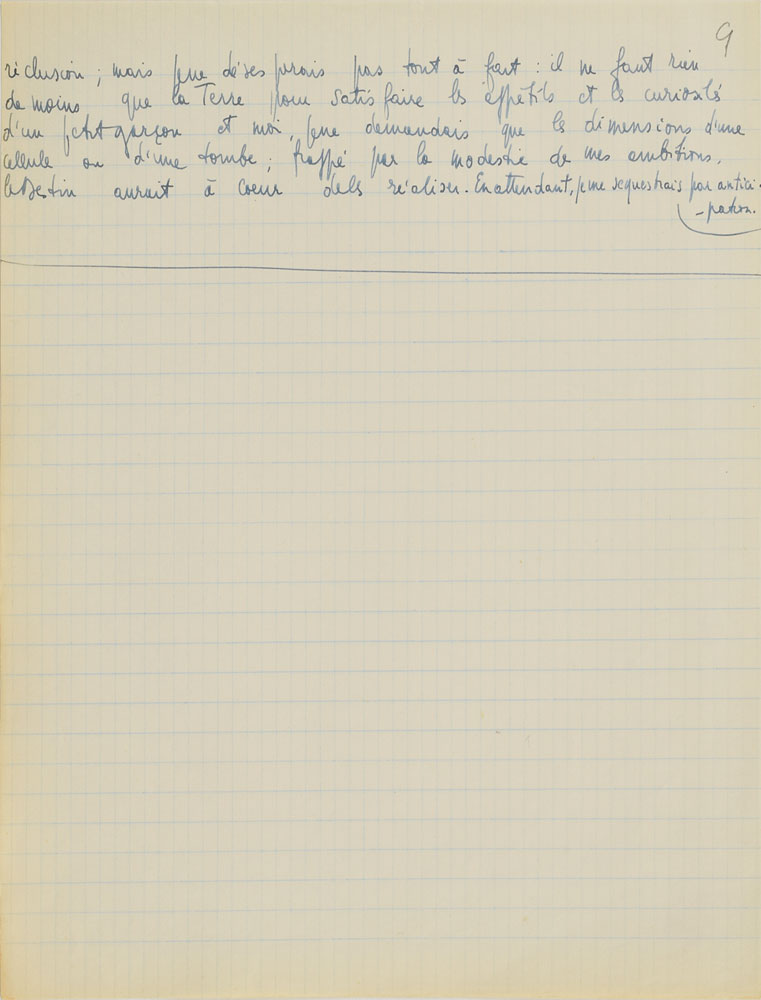 9
réclusion ; mais je ne désespérais pas tout à fait : il ne faut rien
de moins que la Terre pour satisfaire les appétits et les curiosités
d'un petit garçon et moi, je ne demandais que les dimensions d'une
cellule ou d'une tombe ; frappé par la modestie de mes ambitions,
le Destin aurait à coeur de les réaliser. En attendant, je me séquestrais par antici-
-pation.